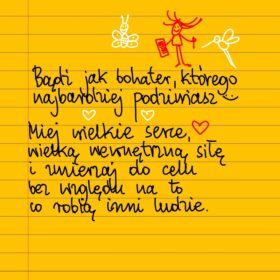 Bądź jak bohater, którego
najbardziej podziwiasz
Miej wielkie serce,
wielką wewnętrzną siłę
i zmierzaj do celu
bez względu na to
co robią inni ludzie.